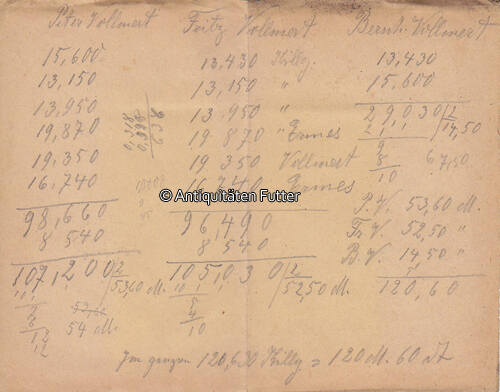 Peter Vollmert
15,600
13,150
13,950
19,870
19,350
16,740
98,660
8 540
107,200 /2
53,60 M.
54 M.
Fritz Vollmert
13,430 Killg.
13,150 "
13 950 "
19 870 " Ermes
19 350 Vollmert
16,740 Ermes
96,490
8 540
105,030 /2
52,50 M.
10
Bernh. Vollmert
13,430
15,600
29,030 /2
14,50
9
8
10
P. V. 53,60 M.
Fr V. 52,50 "
B. V. 14,50 "
120,60
© Antiquitäten Futter
Im ganzen 120,630 Killg = 120 M. 60